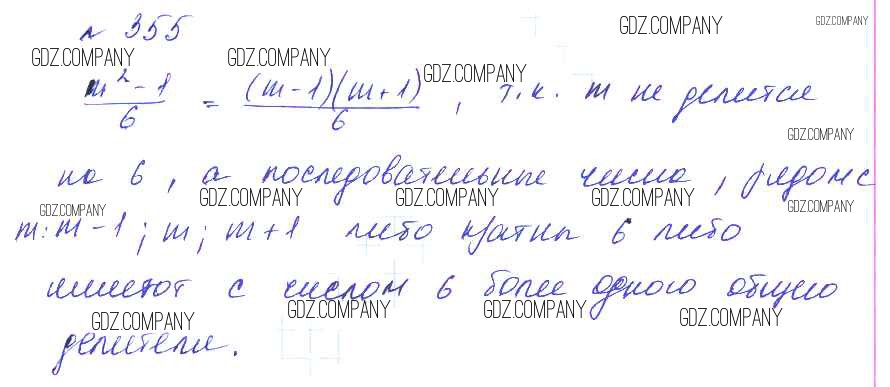 № 355
GDZ.COMPANY GDZ.COMPANY
GDZ.COMPANY GDZ.COMPANY GDZ.COMPANY
(m² - 1)/6 = ((m - 1)(m + 1))/6, т.к. m не делится
GDZ.COMPANY
на 6, а последовательные числа, рядом с
GDZ.COMPANY GDZ.COMPANY GDZ.COMPANY GDZ.COMPANY GDZ.COMPANY
m: m - 1; m; m + 1 либо кратны 6 либо
имеют с числом 6 более одного общего
GDZ.COMPANY GDZ.COMPANY GDZ.COMPANY GDZ.COMPANY
делителя.